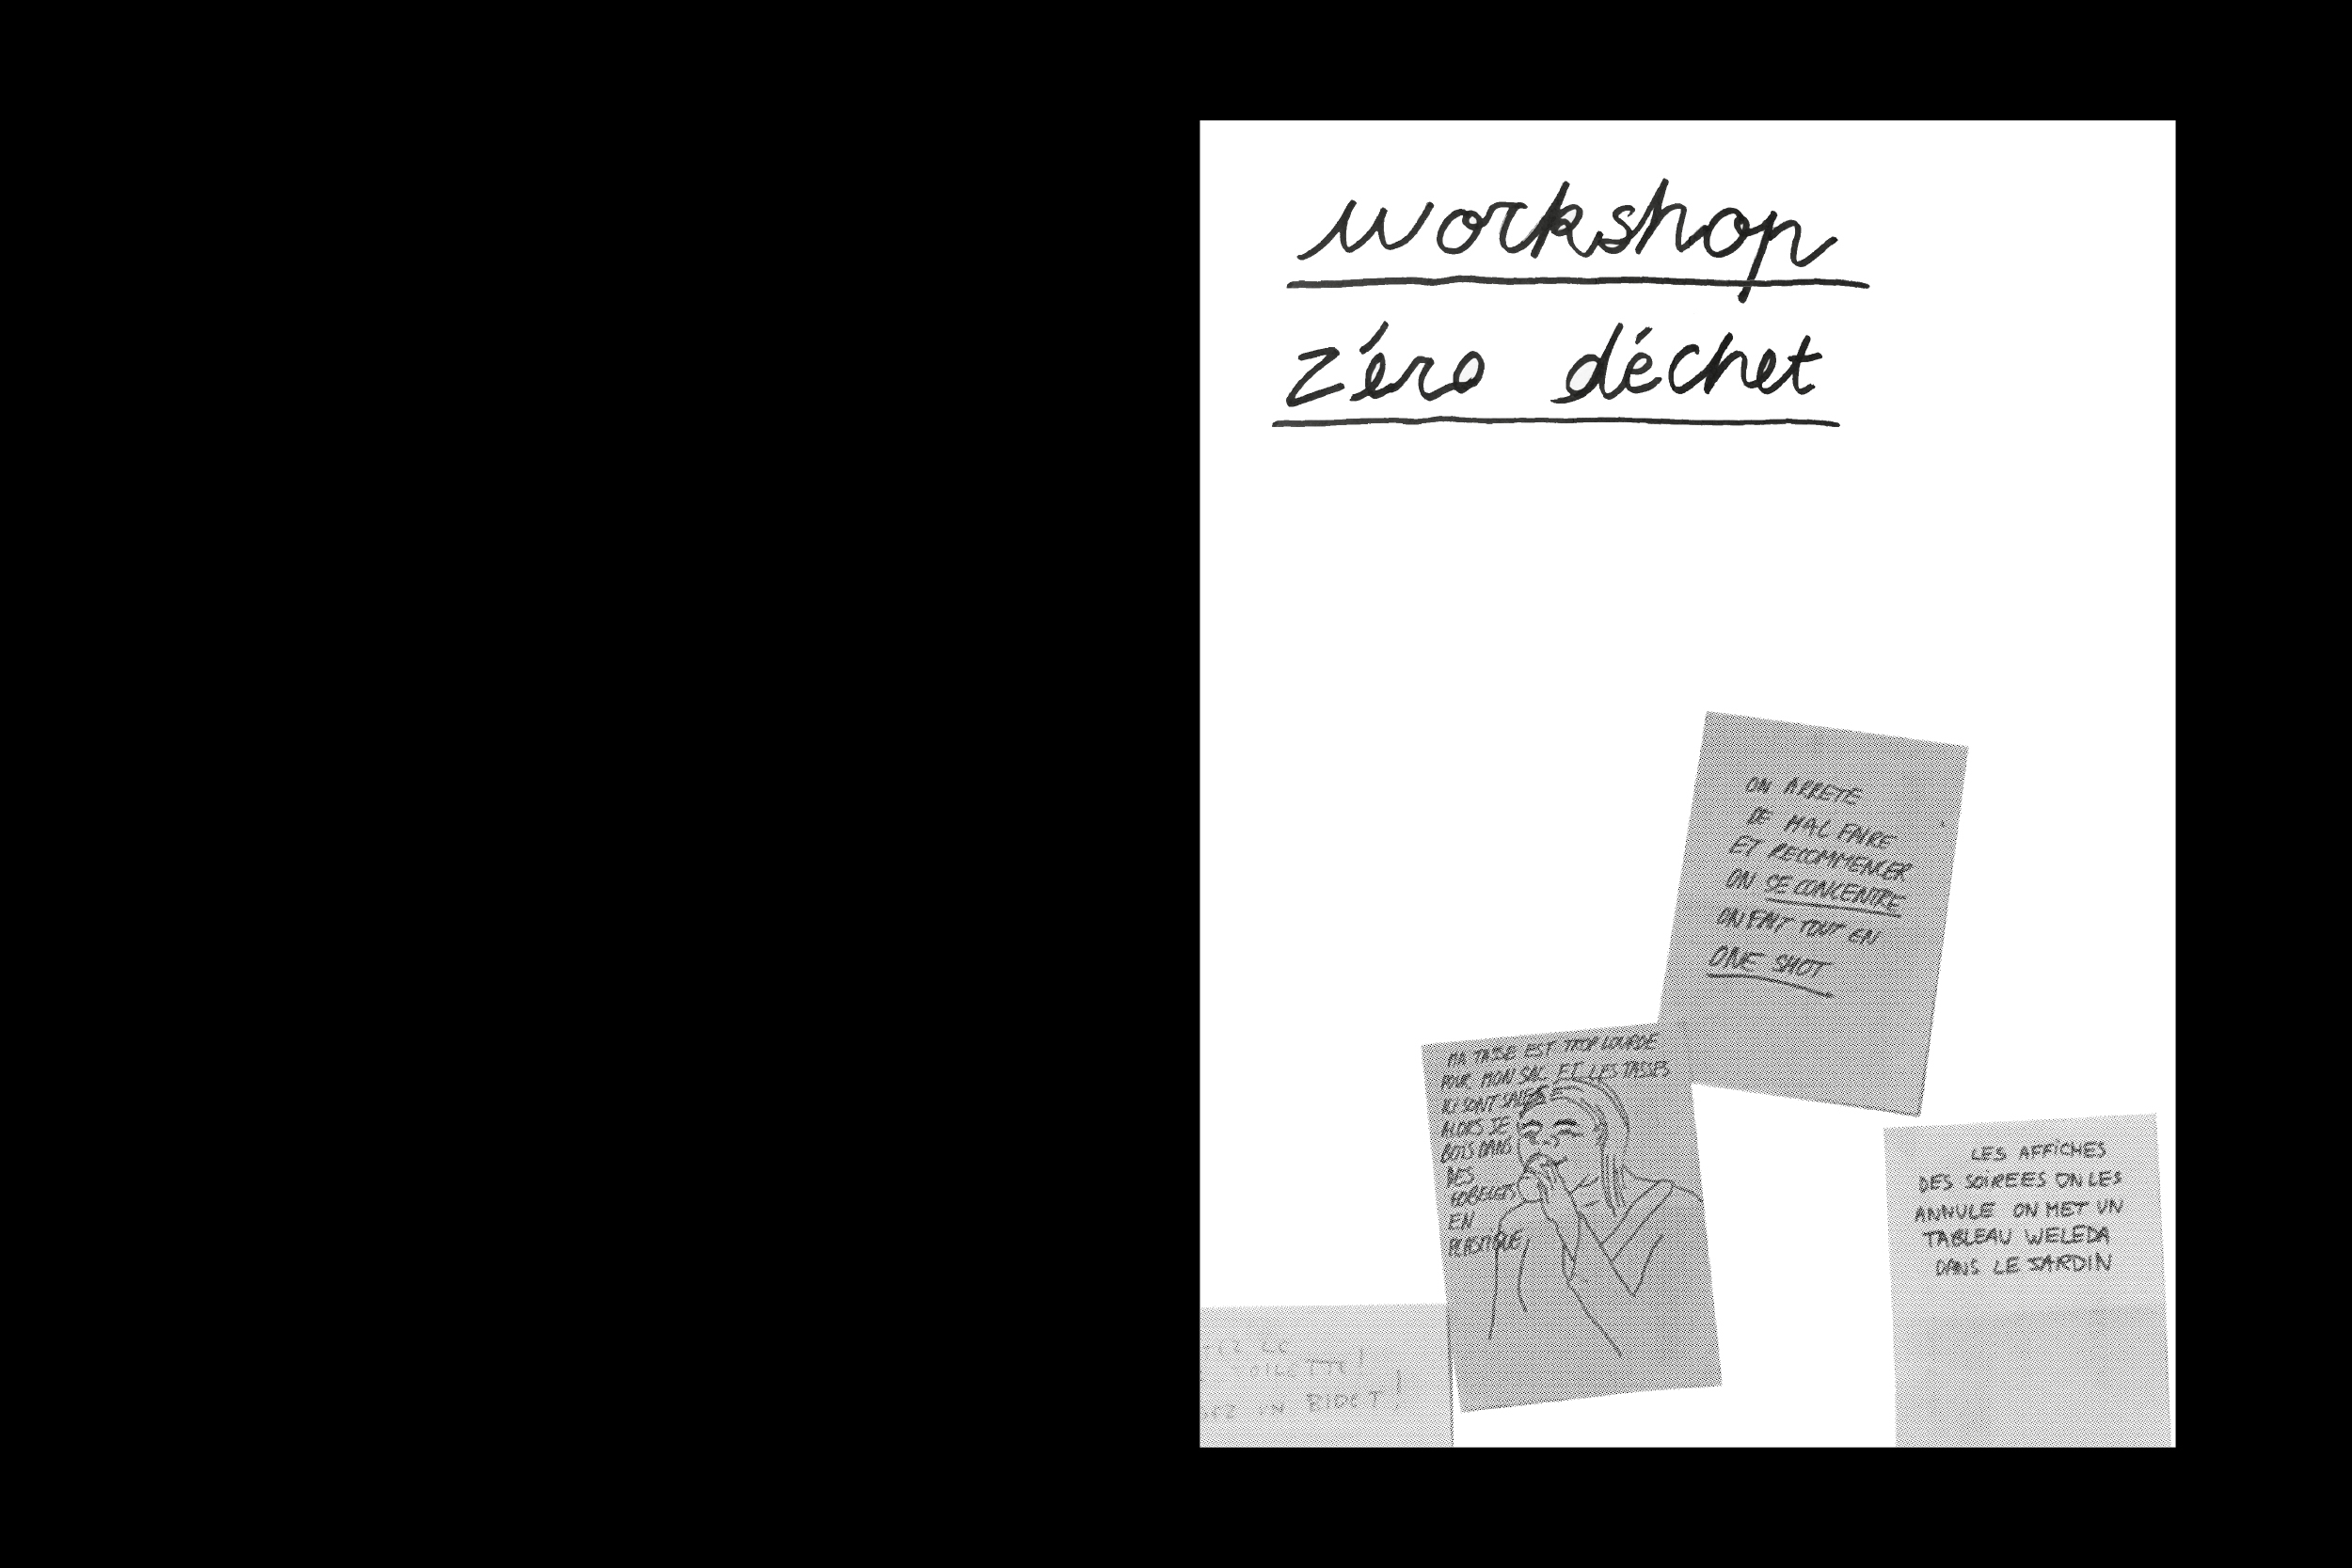 workshop
zéro déchet
ON ARRETE
DE MAL FAIRE
ET RECOMMENCER
ON SE CONCENTRE
ON FAIT TOUT EN
ONE SHOT
MA TASSE EST TROP LOURDE
POUR MON SAC ET LES TASSES
ICI SONT SALES
ALORS JE
BOIS DANS
DES
GOBELETS
EN
PLASTIQUE
LES AFFICHES
DES SOIREES ON LES
ANNULE ON MET UN
TABLEAU WELEDA
DANS LE JARDIN
TOILETTE
BIDET